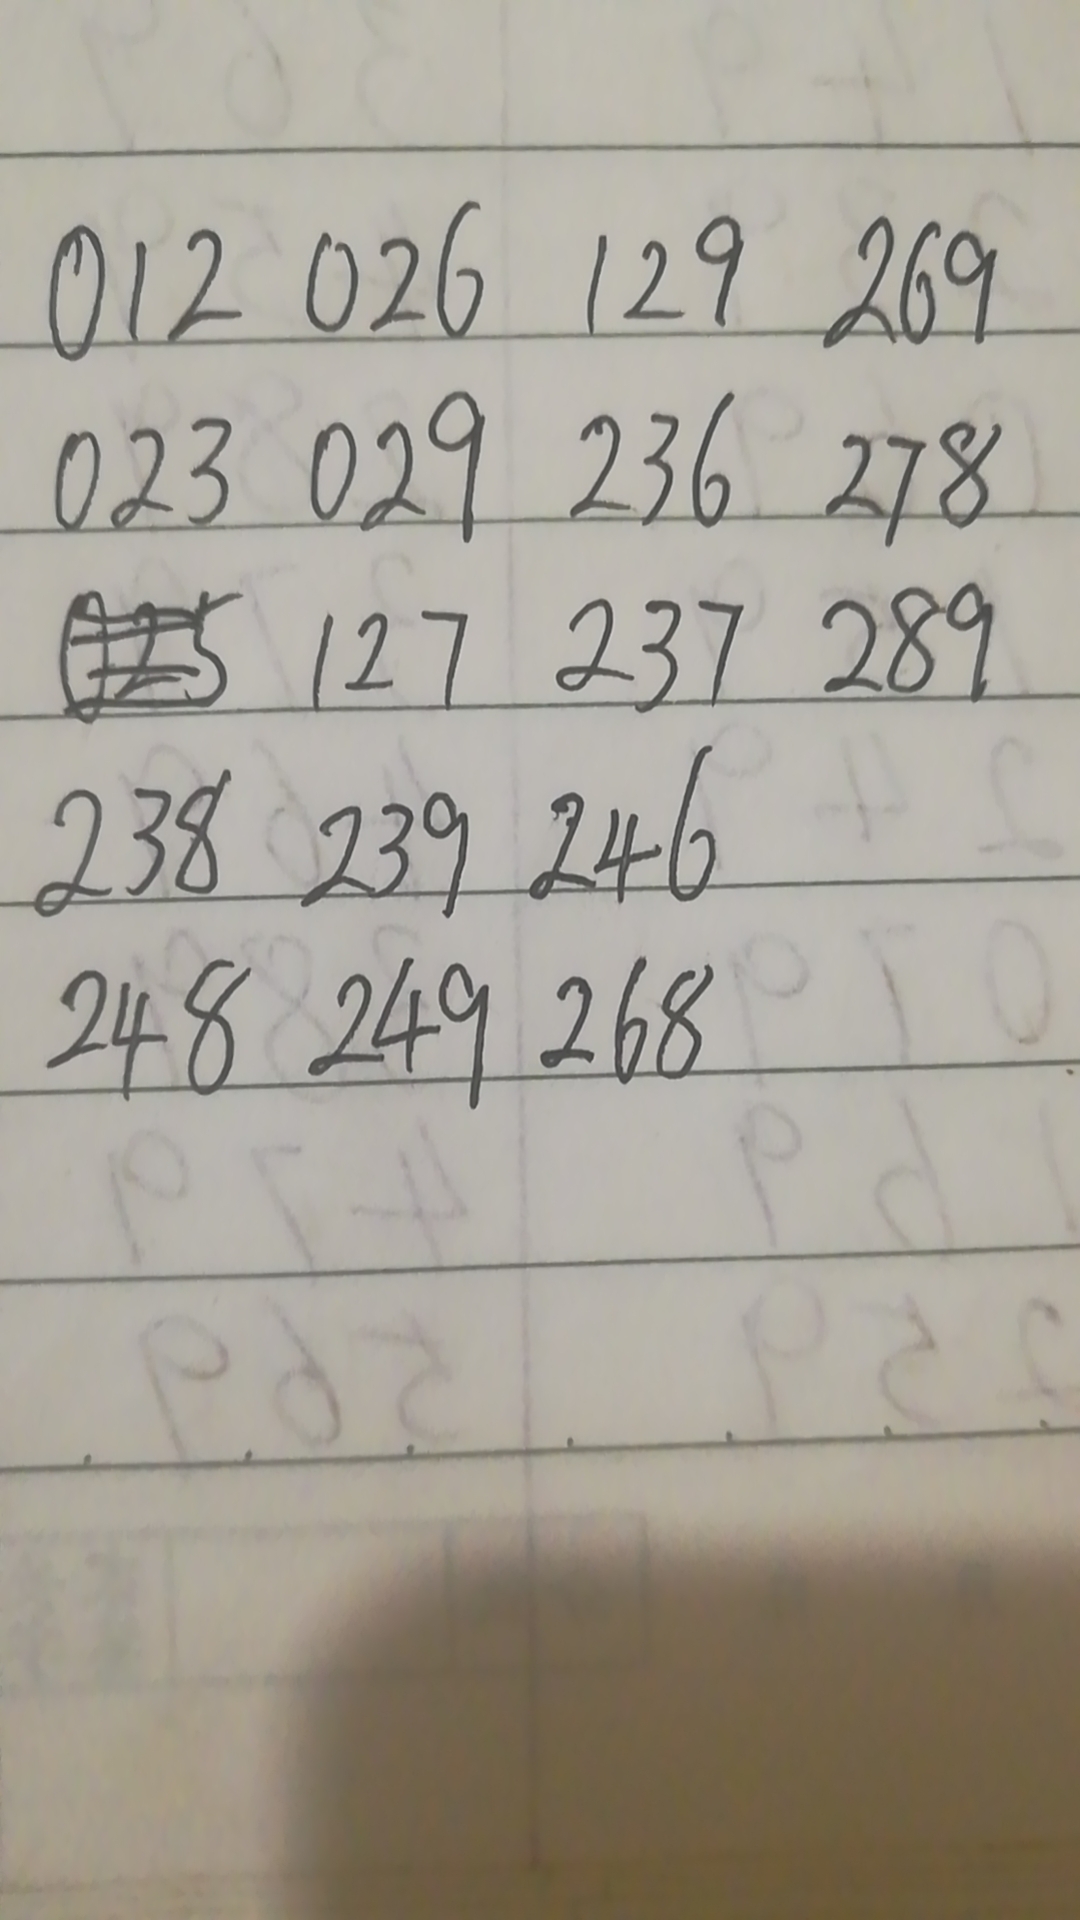 012 026 129 269
023 029 236 278
127 237 289
238 239 246
248 249 268